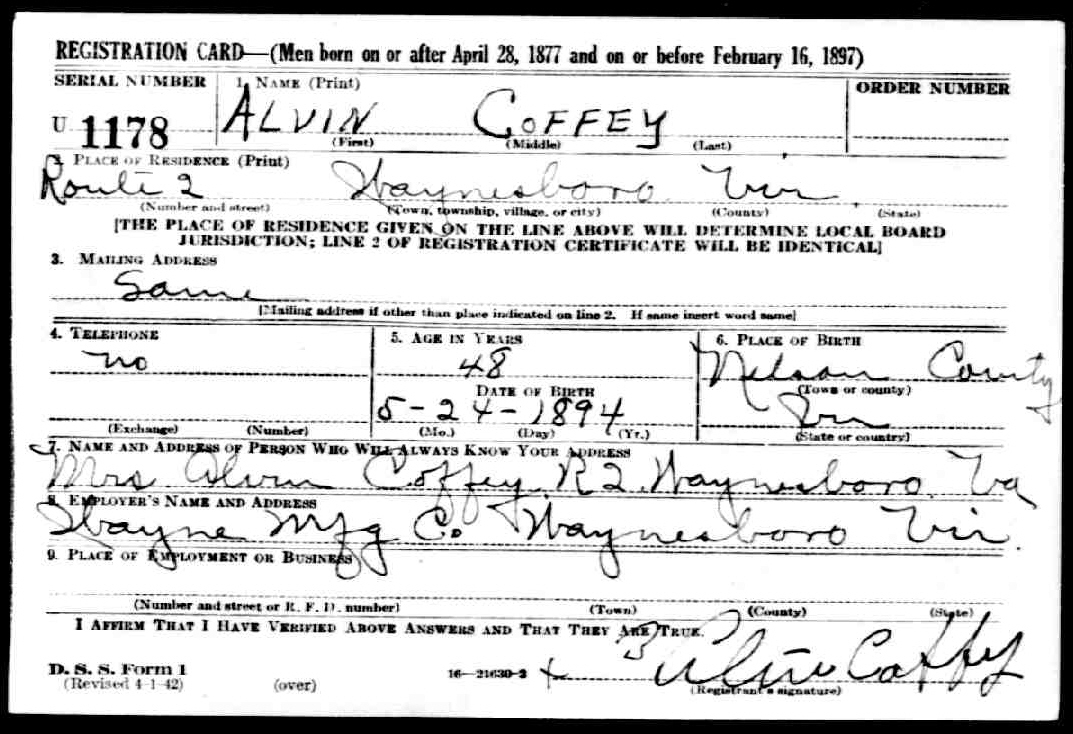 REGISTRATION CARD—(Men born on or after April 28, 1877 and on or before February 16, 1897)
SERIAL NUMBER 1. NAME (Print) ORDER NUMBER
U 1178 ALVIN COFFEY
(First) (Middle) (Last)
2. PLACE OF RESIDENCE (Print)
Route 2 Waynesboro Vir
(Number and street) (Town, township, village, or city) (County) (State)
[THE PLACE OF RESIDENCE GIVEN ON THE LINE ABOVE WILL DETERMINE LOCAL BOARD
JURISDICTION; LINE 2 OF REGISTRATION CERTIFICATE WILL BE IDENTICAL]
3. MAILING ADDRESS
Same
[Mailing address if other than place indicated on line 2. If same insert word same]
4. TELEPHONE 5. AGE IN YEARS 6. PLACE OF BIRTH
no 48 Nelson County
DATE OF BIRTH (Town or county)
5-24-1894 Vir
(Exchange) (Number) (Mo.) (Day) (Yr.) (State or country)
7. NAME AND ADDRESS OF PERSON WHO WILL ALWAYS KNOW YOUR ADDRESS
Mrs Alvin Coffey. R 2. Waynesboro. Va
8. EMPLOYER'S NAME AND ADDRESS
Wayne Mfg Co Waynesboro Vir.
9. PLACE OF EMPLOYMENT OR BUSINESS
(Number and street or R. F. D. number) (Town) (County) (State)
I AFFIRM THAT I HAVE VERIFIED ABOVE ANSWERS AND THAT THEY ARE TRUE.
D. S. S. Form 1 16—21630-2 x Alvin Coffey
(Revised 4-1-42) (over) (Registrant's signature)